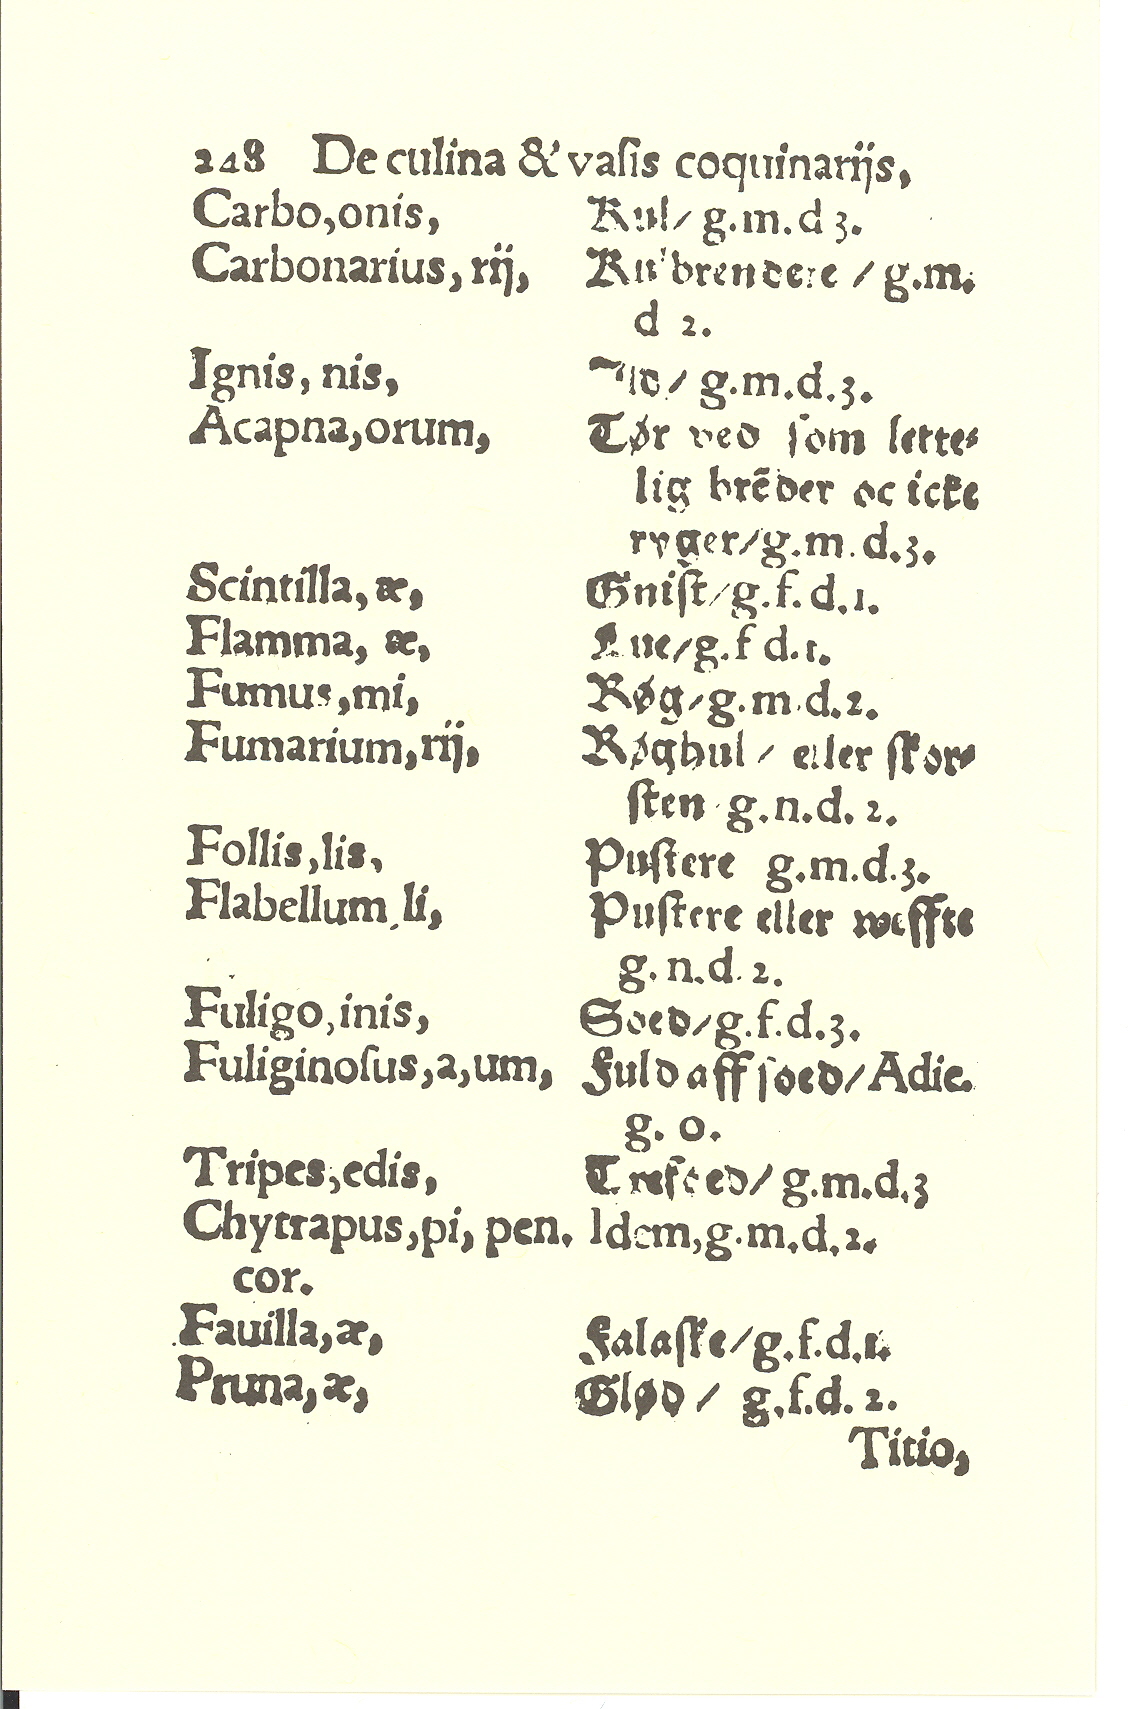 248 De culina & vaſis coquinarijs,
Carbo,onis, Kul/ g.m.d 3.
Carbonarius, rij, Kulbrendere / g.m.
d 2.
Ignis, nis, g.m.d.3.
Acapna,orum, Tør ved ſom lette-
lig brẽder oc icke
ryger/g.m.d.3.
Scintilla, æ, Gniſt/g.f.d.1.
Flamma, æ, Lue/g.f d.1.
Fumus,mi, Røg/g.m.d.2.
Fumarium,rij, Røghul / eller ſkor-
ſten g.n.d. 2.
Follis,lis, Puſtere g.m.d.3.
Flabellum li, Puſtere eller weffte
g. n.d. 2.
Fuligo,inis, Soed/g.f.d.3.
Fuliginoſus,a,um, Fuld aff ſoed/Adie.
g. o.
Tripes,edis, g.m.d.3
Chytrapus,pi, pen. Idem,g.m.d.2.
cor.
Fauilla,æ, Falaſke/g.f.d.1.
Pruna,æ, Glød / g.f.d. 2.
Titio,